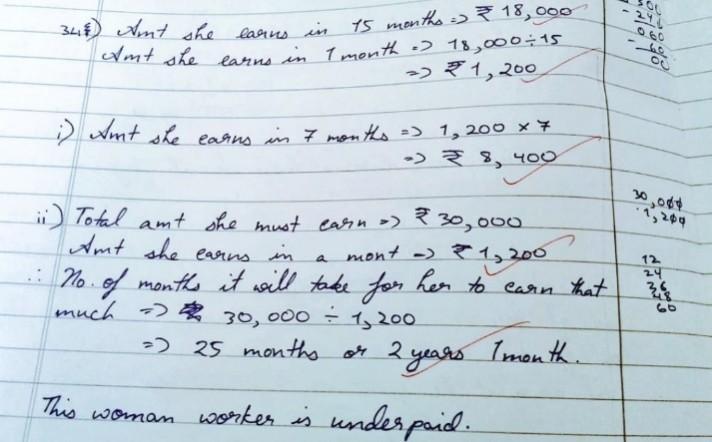 34) Amt she earns in 15 months => ₹ 18,000
Amt she earns in 1 month => 18,000 ÷ 15
=> ₹ 1,200
i) Amt she earns in 7 months => 1,200 × 7
=> ₹ 8,400
ii) Total amt she must earn => ₹ 30,000
Amt she earns in a mont => ₹ 1,200
∴ No. of months it will take for her to earn that
much => 30,000 ÷ 1,200
=> 25 months or 2 years 1 month.
This woman worker is underpaid.
30,000
1,200
12
24
36
48
60